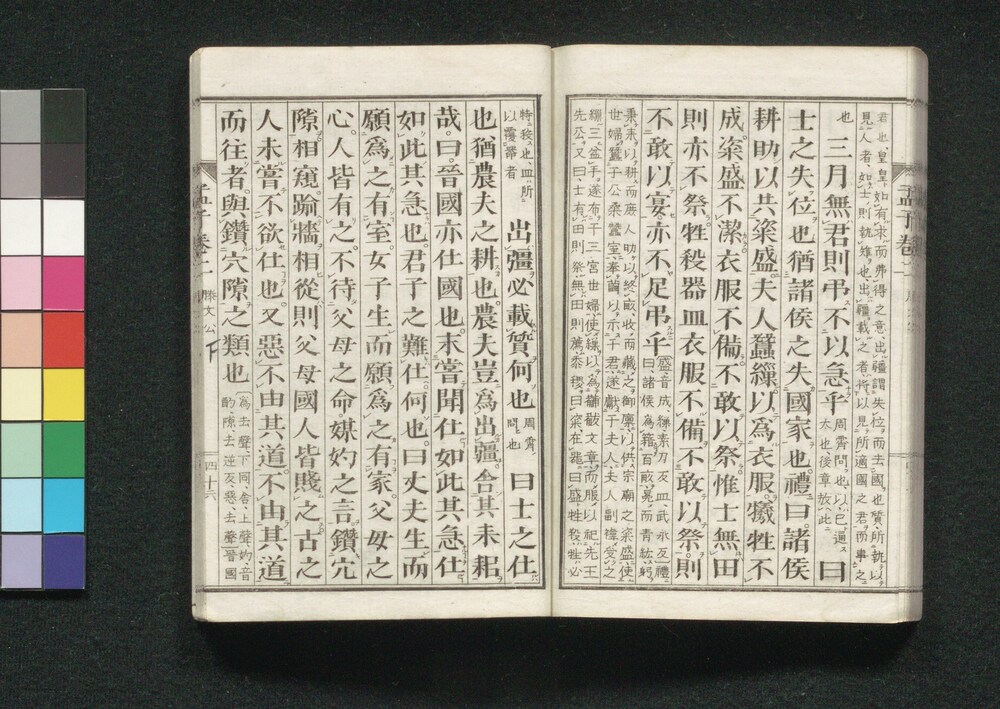 君也、皇皇、如有求而弗得之意、出疆、謂失位而去國也、質、所執以
見人者、如士則執雉也、出疆載之者、將以見所適國之君而事之
也 三月無君則弔不以急乎 周霄問也、以已通、太也、後章放此 曰
士之失位也猶諸侯之失國家也。禮曰。諸侯
耕助以共粢盛。夫人蠶繅以爲衣服。犧牲不
成。粢盛不潔。衣服不備。不敢以祭。惟士無田
則亦不祭。牲殺器皿衣服不備不敢以祭。則
不敢以宴。亦不足弔乎 盛音成、繅素刀反、皿武永反、禮
曰、諸侯爲籍百畝、冕而青紘、躬
秉耒以耕、而庶人助以終畝、收而藏之御廩、以供宗廟之粢盛、使
世婦蠶于公桑蠶室、奉繭以示于君、遂獻于夫人、夫人副褘受之
繅三盆手、遂布于三宮世婦、使繅以爲黼黻文章、而服以祀先王
先公、又曰、士有田則祭、無田則薦、黍稷曰粢、在器曰盛、牲殺、牲必
特殺也、皿、所
以覆器者
出疆必載質何也 周霄
問也 曰士之仕
也猶農夫之耕也。農夫豈爲出疆。舍其耒耜
哉。曰。晉國亦仕國也。未嘗聞仕如此其急。仕
如此其急也。君子之難仕何也。曰。丈夫生而
願爲之有室。女子生而願爲之有家。父母之
心。人皆有之。不待父母之命。媒妁之言。鑽穴
隙相窺。踰牆相從。則父母國人皆賤之。古之
人未嘗不欲仕也。又惡不由其道。不由其道
而往者。與鑽穴隙之類也 爲、去聲、下同、舍、上聲、妁、音
酌、隙、去逆反、惡、去聲、晉國
孟子卷二 滕文公下 四十六